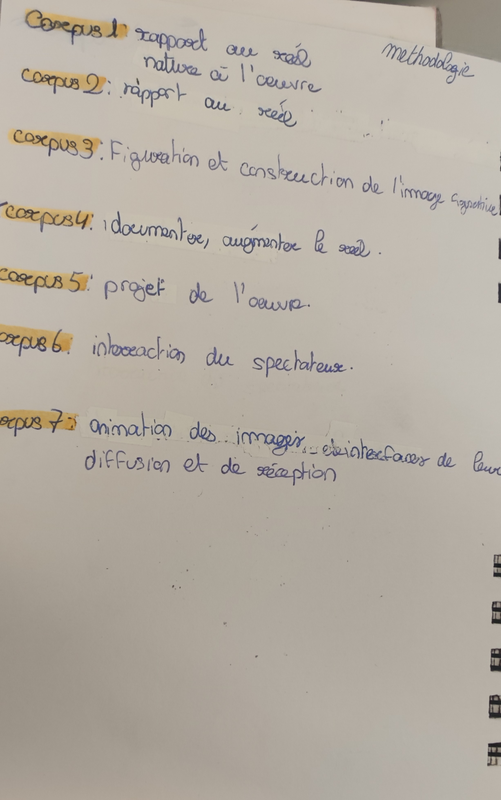 methodologie
Corpus 1: rapport au réel
nature à l'oeuvre
corpus 2: rapport au réel
corpus 3: Figuration et construction de l'image
corpus 4: documenter, augmenter le réel.
corpus 5: projet de l'oeuvre.
orpus 6: interaction du spectateur.
orpus 7: animation des images et interfaces de leur
diffusion et de réception